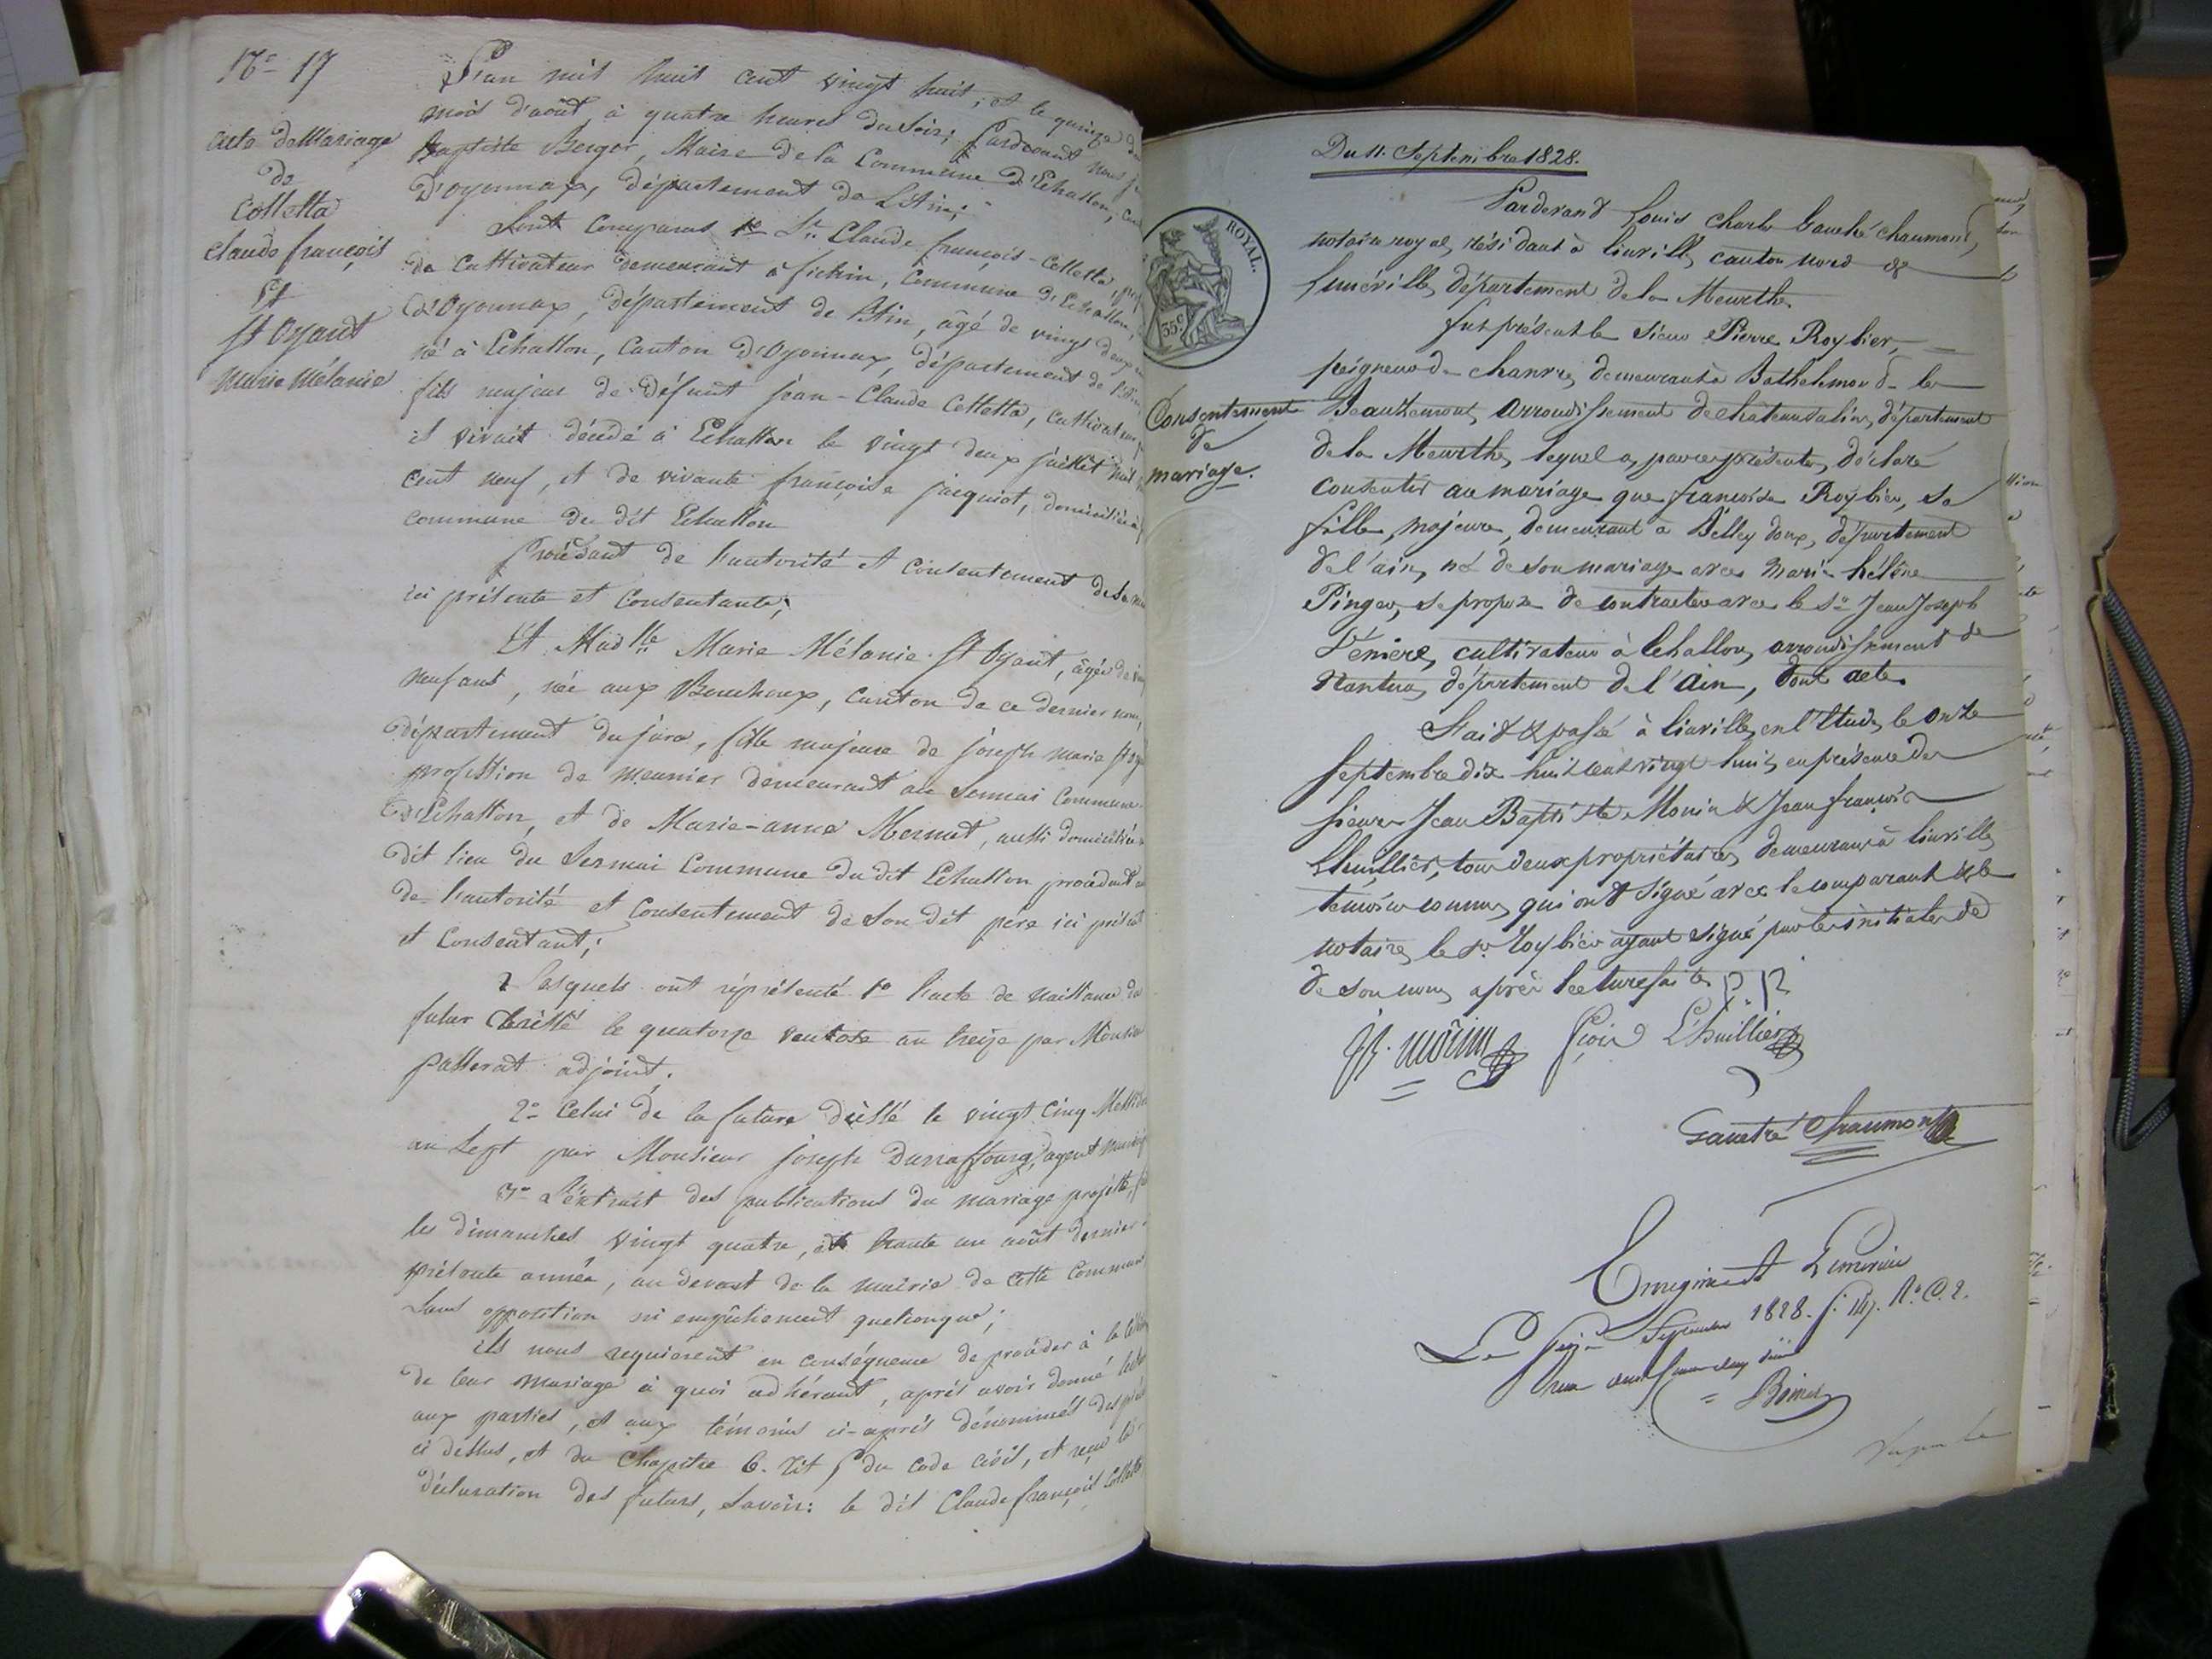 N° 17
acte de Mariage
de
Colletta
claude françois
Et
St Oyant
Marie Mélanie
L'an mil huit cent vingt huit; et le quinze du
mois d'août, à quatre heures du soir; Pardevant nous
Baptiste Berger, Maire de la Commune d'Echallon,
D'oyonnax, département de L'Ain;
Sont Comparus 1° Sr. Claude françois-Colletta
de Cultivateur demeurant à fichin, Commune d'Echallon,
D'Oyonnax, département de l'Ain, âgé de vingt deux
né à Echallon, Canton D'Oyonnax, département de l'Ain
fils majeur de défunt jean-Claude Colletta, cultivateur
il vivait décédé à Echallon le vingt deux juillet mil
cent neuf, et de vivante françoise jacquiot, domiciliée
commune du dit Echallon
Procédant de l'autorité et Consentement de Sa
ici présente et Consentante;
Et Madlle Marie Mélanie St Oyant, âgée de
neuf ans, née aux Bouchoux, Canton de ce dernier nom,
département du jura, fille majeure de joseph marie
profession de Meunier demeurant au Sermai Commune
D'Echallon, et de Marie-anne Mermet, aussi domiciliée
dit lieu du Sermai Commune du dit Echallon procédant
de l'autorité et Consentement de Son dit père ici présent
et Consentant;
Lesquels ont représenté 1° l'acte de naissance du
futur dressé le quatorze ventose an treize par Monsieur
passerat adjoint.
2° Celui de la future dressé le vingt Cinq Messidor
an Sept par Monsieur joseph Durraffourg, agent
3° L'extrait des publications du mariage projetté,
les dimanches vingt quatre, et trente un août dernier
présente année, au devant de la mairie de cette Commune
Sans opposition ni empêchement quelconque;
ils nous requièrent en conséquence de procéder à la
de leur mariage à quoi adhérant, après avoir donné
aux parties, et aux témoins ci-après dénommés des
ci dessus, et du Chapitre 6. tit 5 du Code civil, et reçu la
déclaration des futurs, Savoir: le dit Claude françois Colletta
Du 11. Septembre 1828.
ROYAL.
35c
Consentement
de
mariage.
Pardevant Louis Charles Gauché Chaumont,
notaire royal, résidant à Einville, canton nord de
Lunéville, département de la Meurthe.
fut présent le sieur Pierre Roybier,
peigneur de chanvre, demeurant à Bathelémont le
Beauzemont, arrondissement de Chateausalins, département
de la Meurthe, lequel a, par ces présentes, déclaré
consentir au mariage que françoise Roybier, sa
fille majeure, demeurant à Belleydoux, département
de l'ain, né de son mariage avec Marie hélène
Pinger, se propose de contracter avec le Sr Jean Joseph
cultivateur à Echallon, arrondissement de
Nantua, département De l'Ain, dont acte.
Fait & passé à Einville, en l'Etude, le onze
Septembre dix huit cent vingt huit, en présence des
sieurs Jean Baptiste Monin & Jean françois
Lhuillier, tous deux propriétaires, demeurant à Einville,
témoins connus, qui ont signé avec le comparant & le
notaire, le sr Roybier ayant signé par les initiales de
de son nom, après lecture faite P. R.
JB. Monin fçois L'huillier
Chaumont
1828.